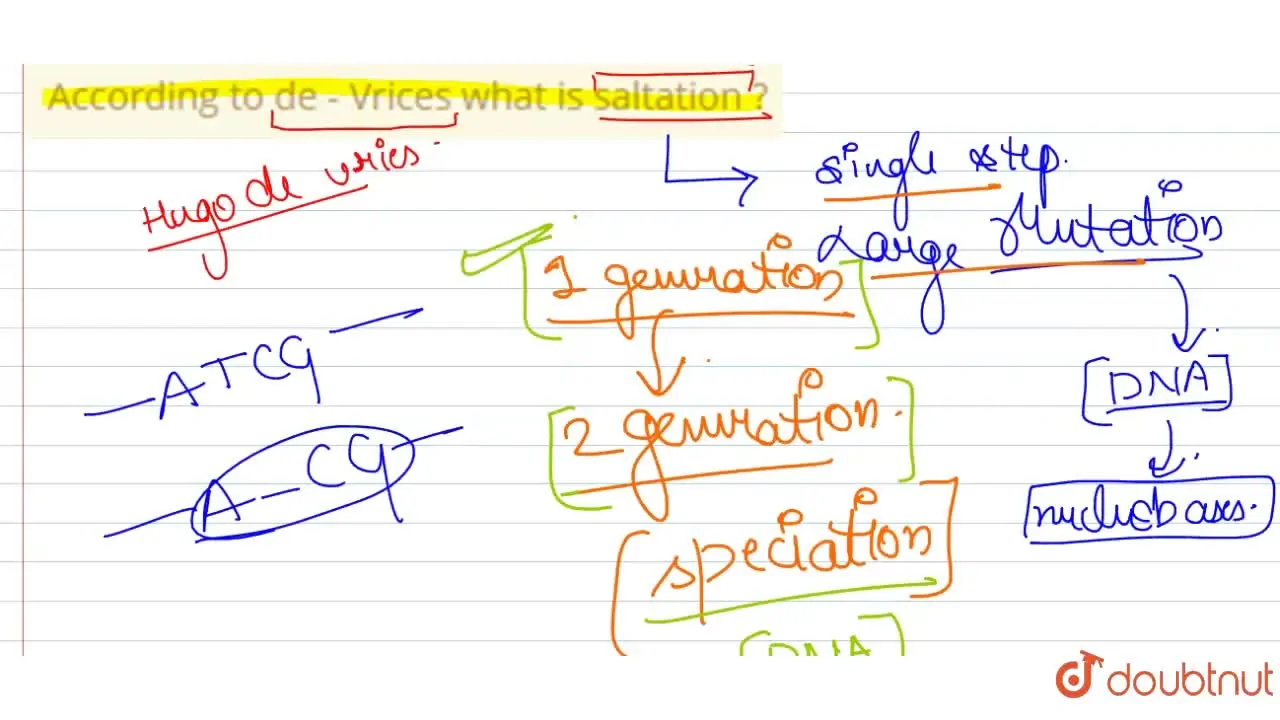 According to de - Vrices what is saltation ?
Hugo de vries.
single step.
Large Mutation
1 generation
2 generation.
speciation
[DNA]
[DNA]
nucleobases.
ATCG
A-CG
doubtnut